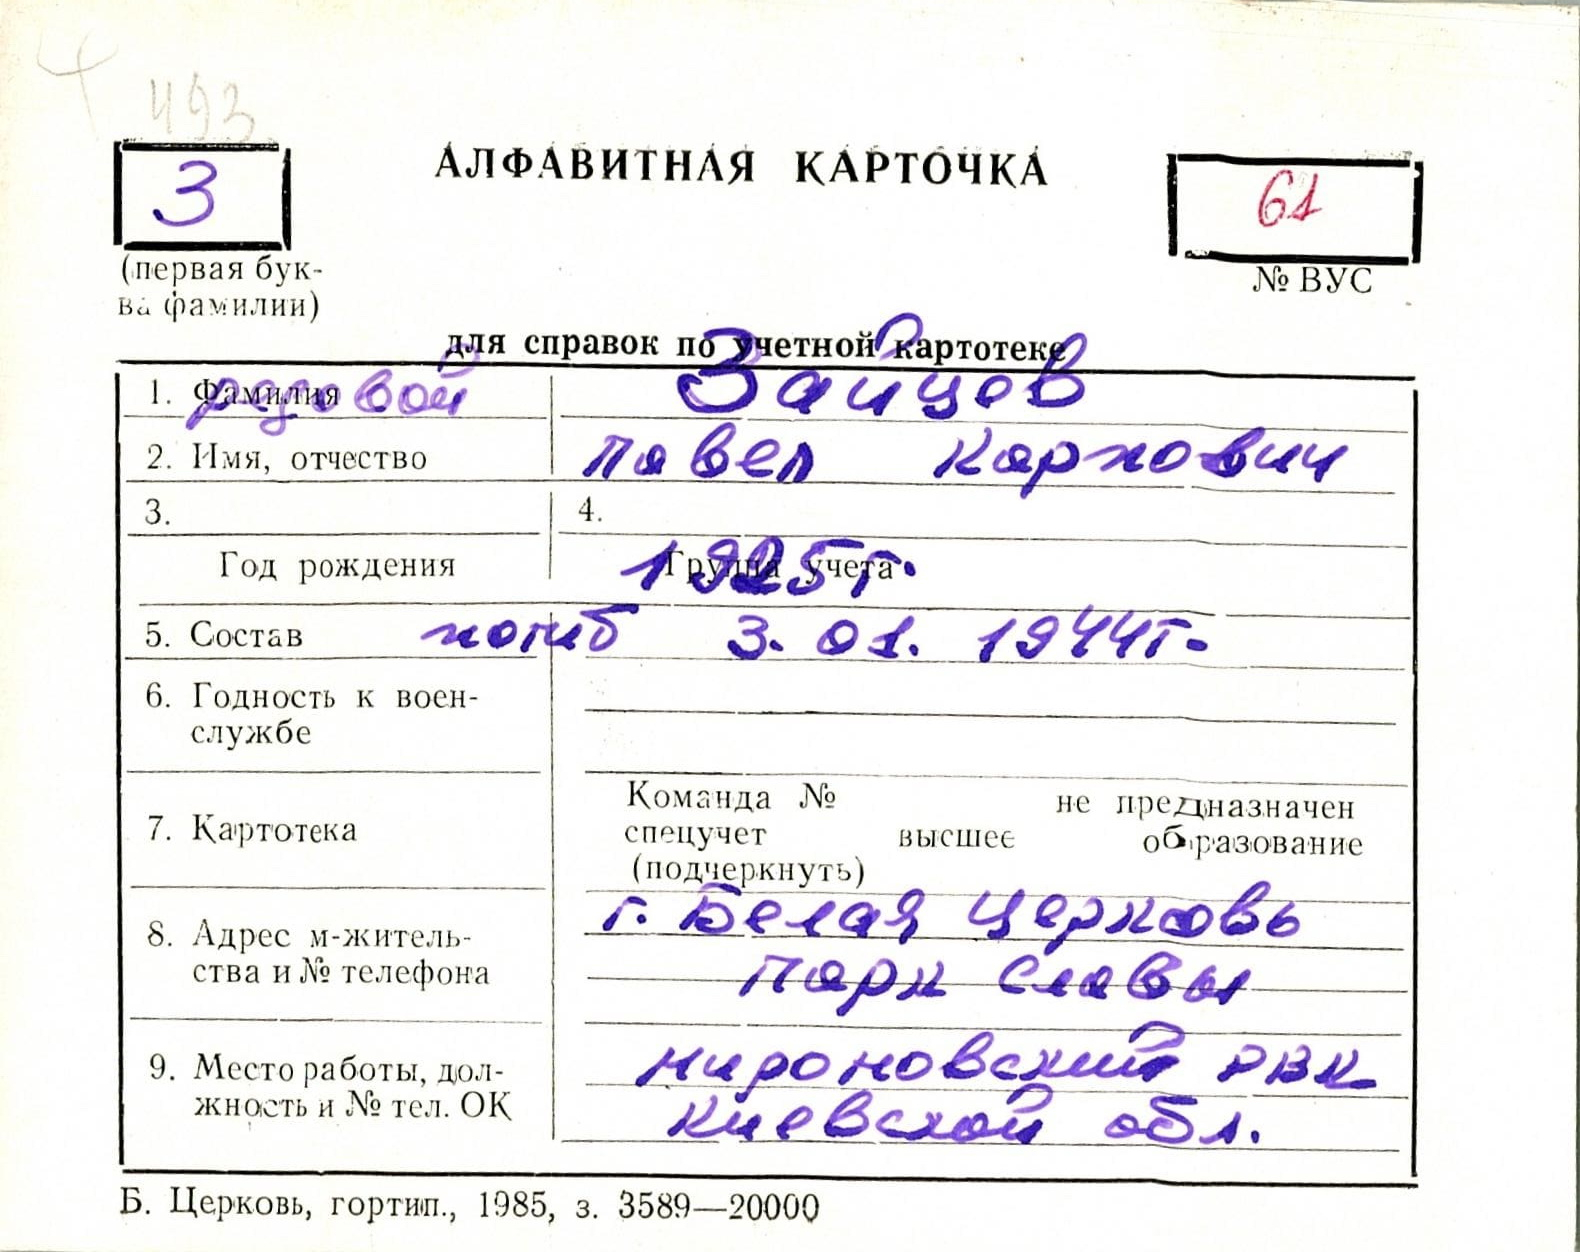 493
З
АЛФАВИТНАЯ КАРТОЧКА
61
(первая бук-
ва фамилии)
№ ВУС
для справок по учетной картотеке
1. Фамилия рядовой Зайцов
2. Имя, отчество Павел Карпович
3. 4.
Год рождения Группа учета 1925 г.
5. Состав погиб 3. 01. 1944 г.
6. Годность к воен-
службе
Команда № не предназначен
7. Картотека спецучет высшее образование
(подчеркнуть)
г. Белая Церковь
8. Адрес м-житель-
ства и № телефона Парк Славы
9. Место работы, дол- Мироновский РВК
жность и № тел. ОК Киевской обл.
Б. Церковь, гортип., 1985, з. 3589—20000